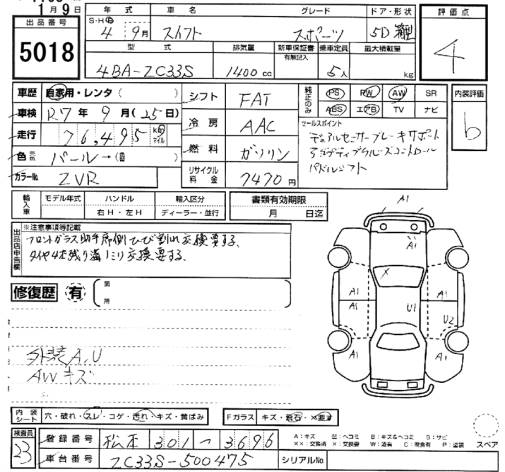 月9日
出品番号
5018
S・H・R 年 車名 グレード ドア・形状 評価点
4年9月 スイフト スポーツ 5D
4
型式 排気量 新車保証書 有無記入 乗車定員 最大積載量
4BA-ZC33S 1400cc 5人 kg
車歴 自家用・レンタ( )
車検 R7年9月(25日)
走行 76,495 km マイル
色 パール→( )
カラーNo ZVR
シフト FAT
冷房 AAC
燃料 ガソリン
リサイクル料金 7470円
純正のみ PS PW AW SR
ABS エアB TV ナビ
セールスポイント
デュアルセンサーブレーキサポート
アダプティブクルーズコントロール
パドルシフト
内装評価
b
輸入車 モデル年式 ハンドル 輸入区分 書類有効期限
年 右H・左H ディーラー・並行 月 日迄
出品店申告欄
※注意事項等記載
フロントガラス助手席側ひび割れ交換要する。
タイヤ4本残り溝1ミリ交換要する。
修復歴 有 箇所
外装A,U
AWキズ
A1
A1
A1
A1
X
U1
U2
内装シート 穴・破れ・スレ・コゲ・汚れ・キズ・黄ばみ
Fガラス キズ・飛石・
検査員
23
登録番号 松本 301 ― 3696
車台番号 ZC33S-500475
シリアルNo
A:キズ U:ヘコミ B:キズ&ヘコミ S:サビ
XX:交換済 X:交換要 W:波 C:腐食 P:塗装
スペア